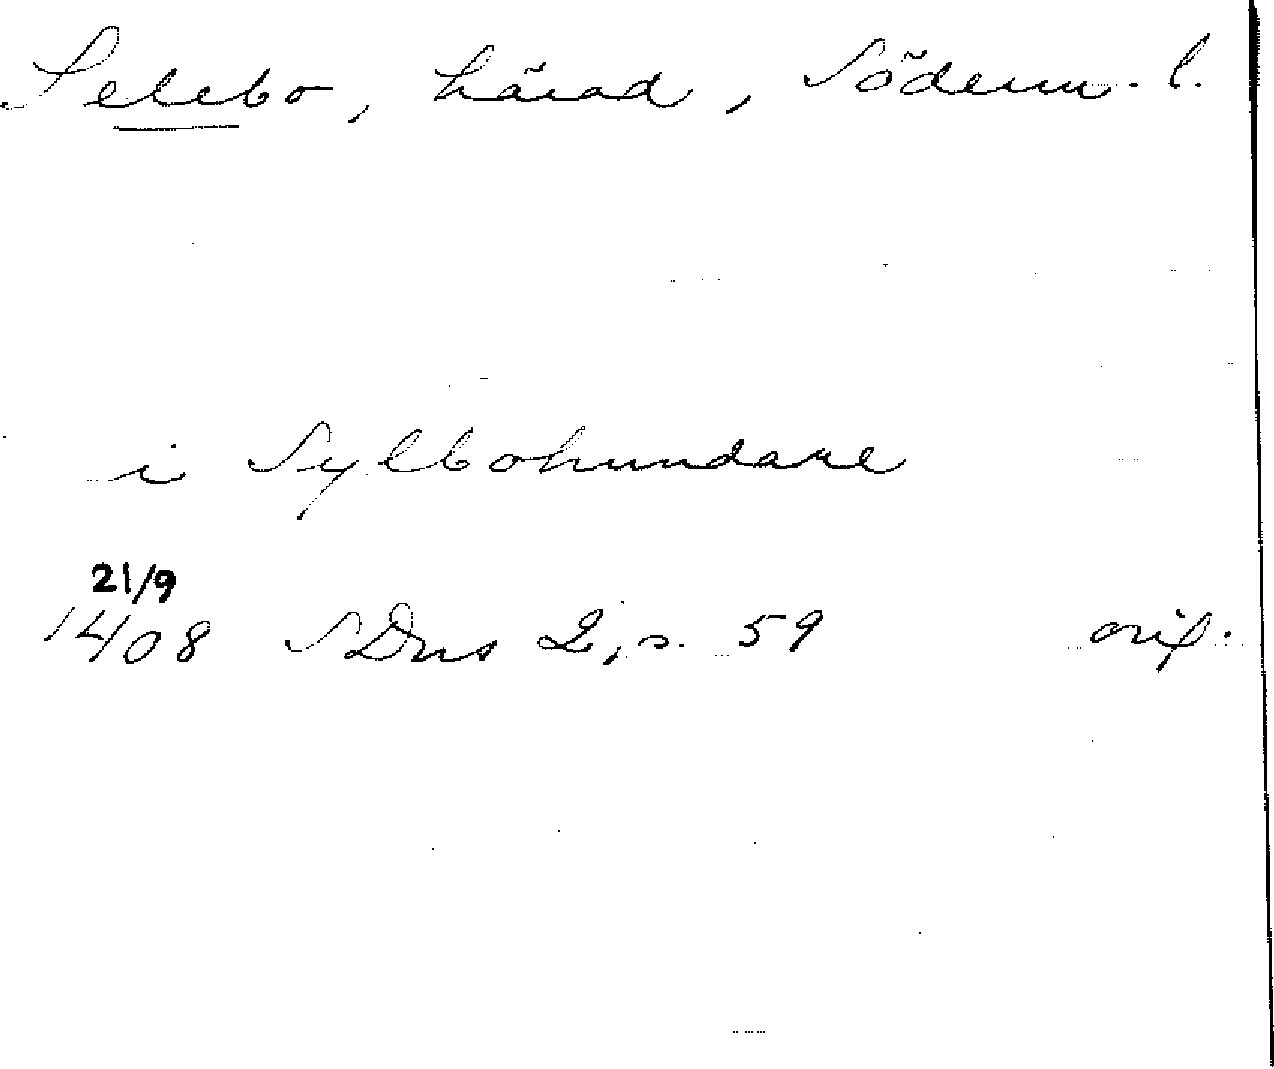 Selebo, härad, Söderm. l.
i Sylbohundare
21/9
1408 SDns 2, s. 59 orig.